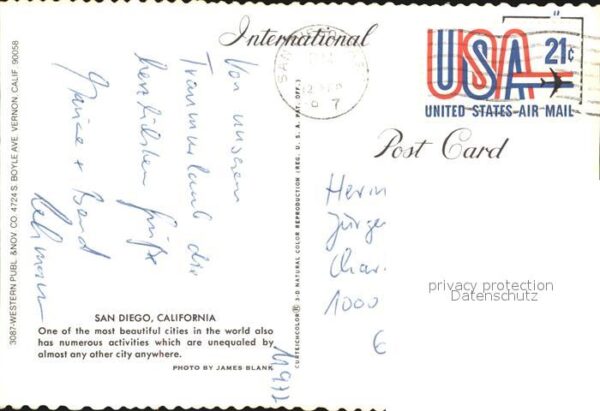 International
SAN
12
7
USA 21c
UNITED STATES·AIR MAIL
Post Card
Von unserem
Traumurlaub die
herzlichsten Grüße
+ Bernd
Herrn
Jürgen
Char
1000
6
privacy protection
Datenschutz
SAN DIEGO, CALIFORNIA
One of the most beautiful cities in the world also
has numerous activities which are unequaled by
almost any other city anywhere.
PHOTO BY JAMES BLANK
3087-WESTERN PUBL. & NOV. CO. 4724 S. BOYLE AVE. VERNON, CALIF. 90058
CURTEICHCOLOR® 3-D NATURAL COLOR REPRODUCTION (REG. U. S. A. PAT. OFF.)